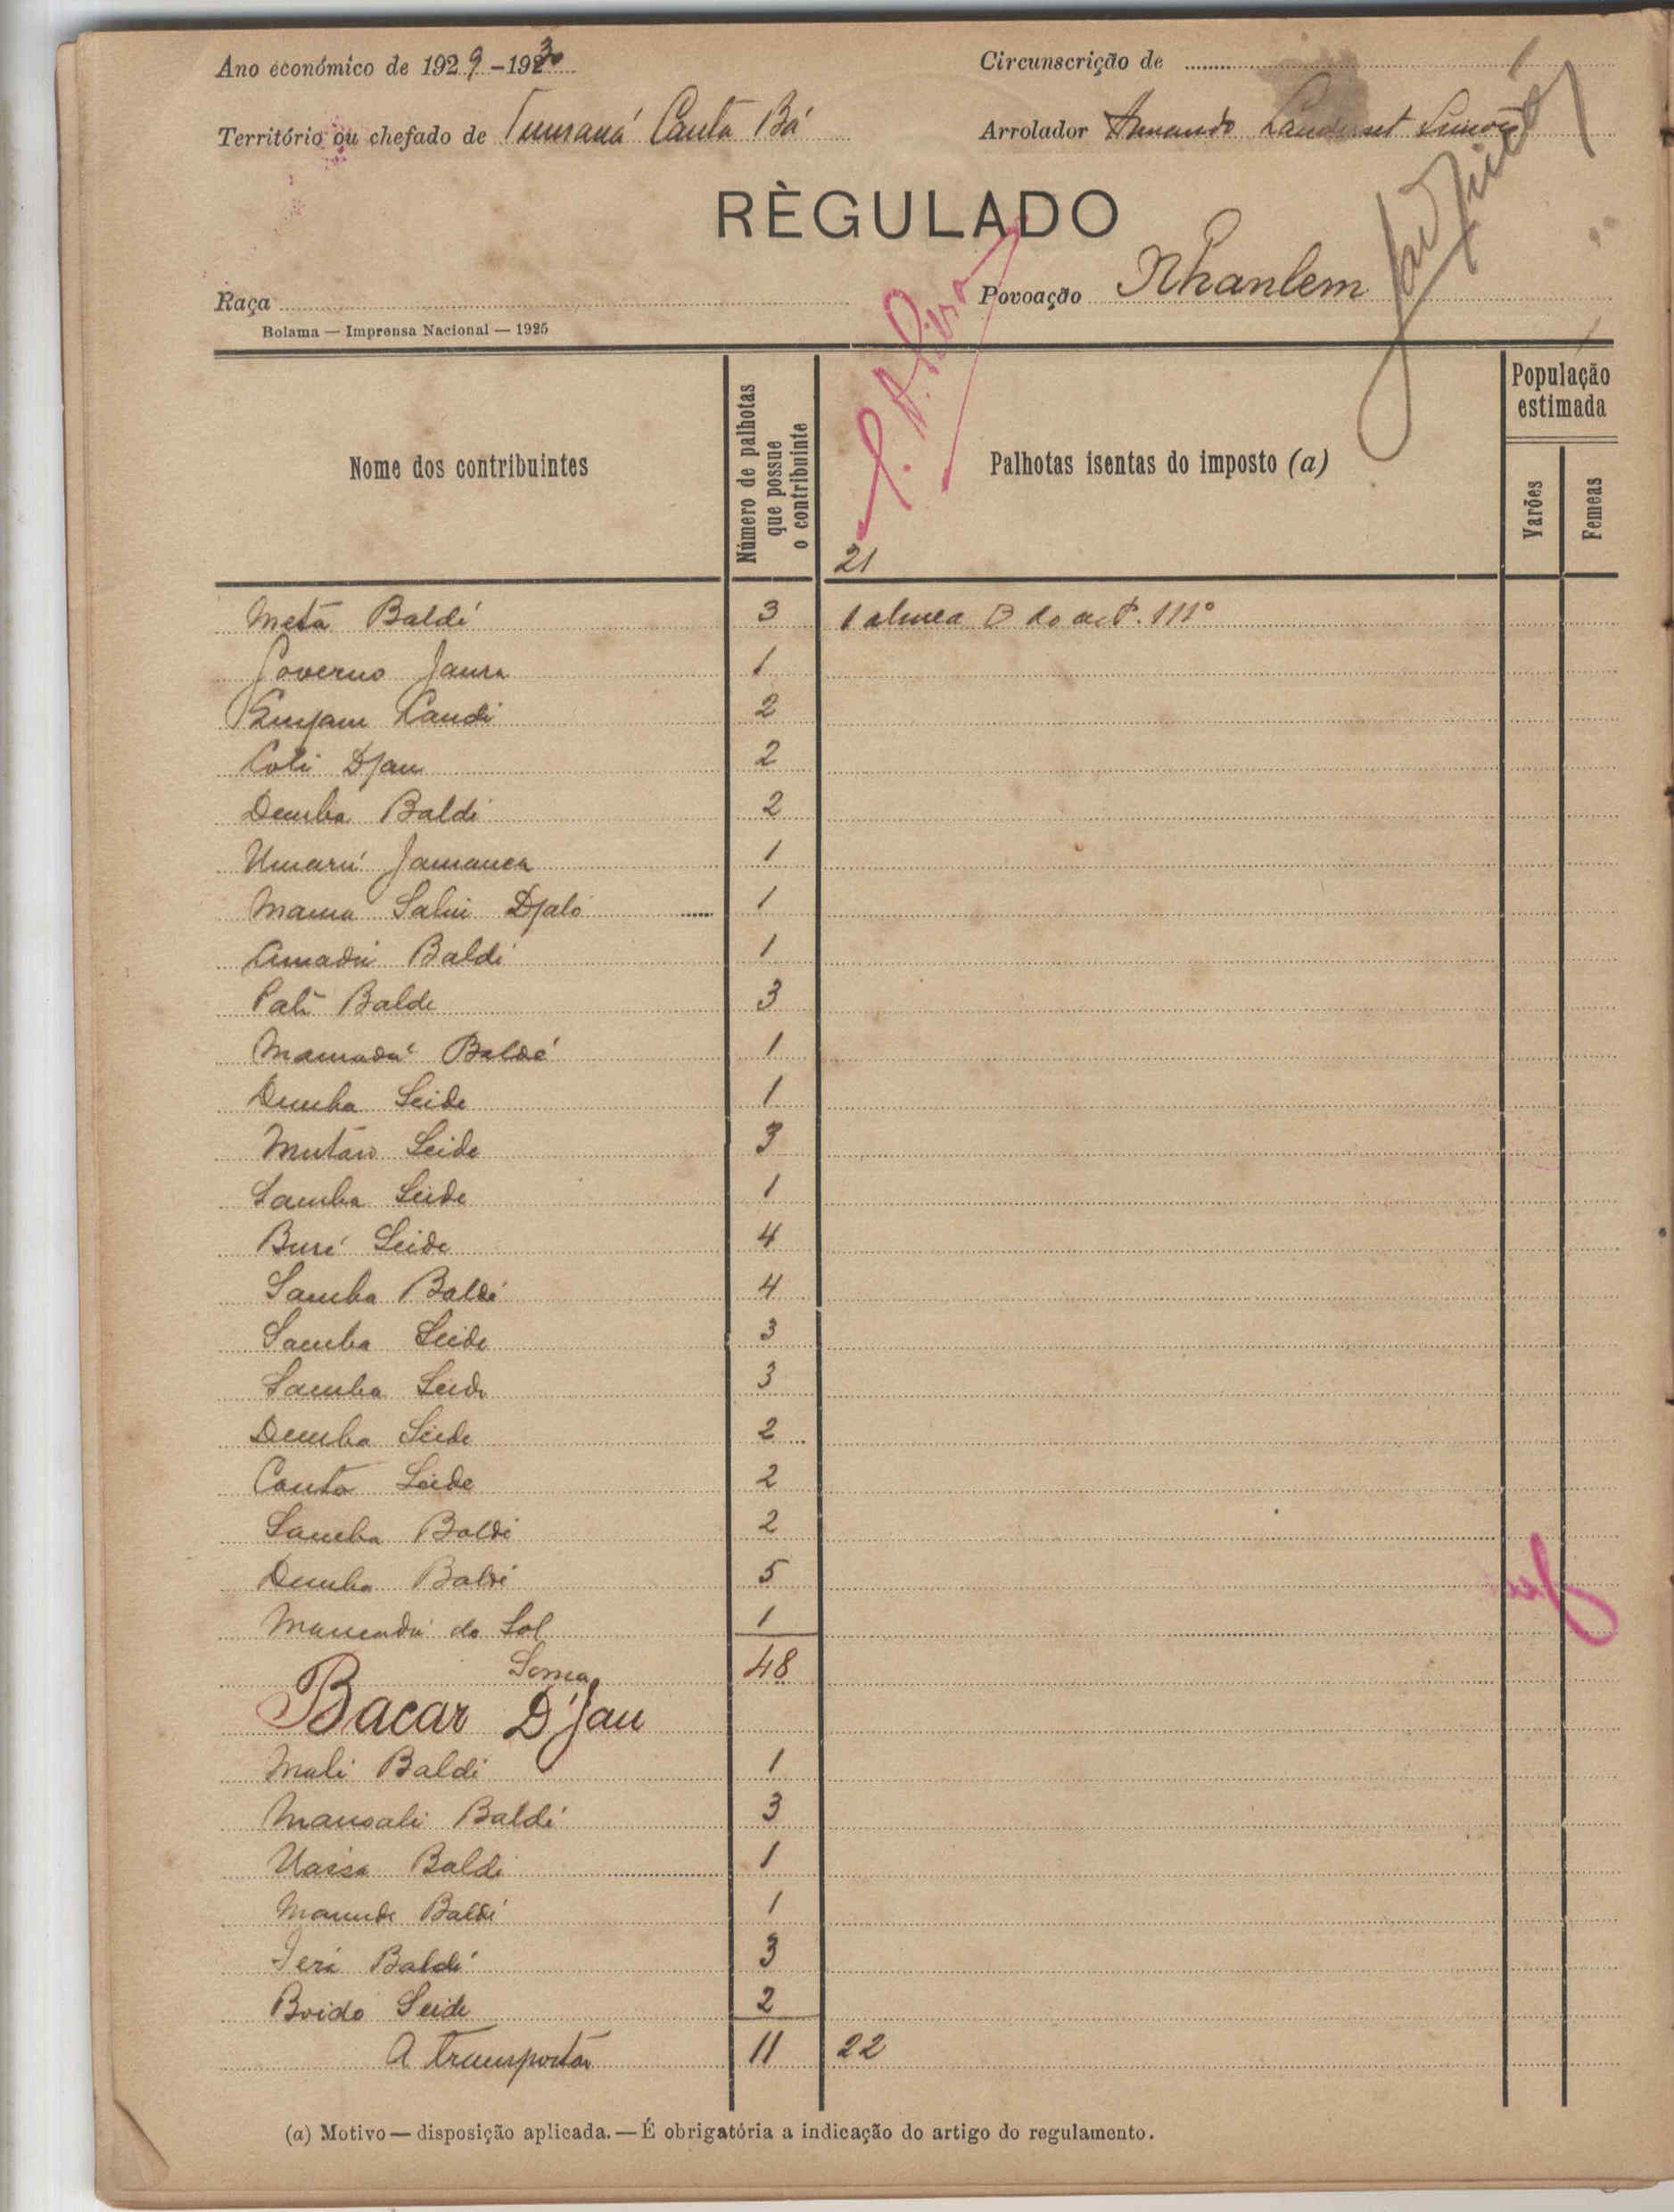 Ano económico de 1929-1930
Circunscrição de
Território ou chefado de Canta Bá
Arrolador Armando Landerset Simões
RÈGULADO
Raça
Povoação Nhanlem
Bolama — Imprensa Nacional — 1925
Nome dos contribuintes
Número de palhotas que possue o contribuinte
Palhotas isentas do imposto (a)
População estimada
Varões
Femeas
21
Meta Baldé 3 1 alinea B do art. 111º
Governo Jaura 1
Candi 2
Coli Djau 2
Demba Baldé 2
Umarú Jamanca 1
Mama Saliu Djaló 1
Amadú Baldé 1
Pati Balde 3
Mamadú Baldé 1
Demba Seide 1
Mutaro Seide 3
Samba Seide 1
Buré Seide 4
Samba Baldé 4
Samba Seide 3
Samba Seide 3
Demba Seide 2
Canta Seide 2
Samba Baldé 2
Demba Baldé 5
Mamadú do Sol 1
Soma 48
Bacar D'jau
Mali Baldé 1
Mansali Baldé 3
Baldé 1
Maunde Baldé 1
Baldé 3
Boido Seide 2
A transportar 11 22
(a) Motivo — disposição aplicada. — É obrigatória a indicação do artigo do regulamento.